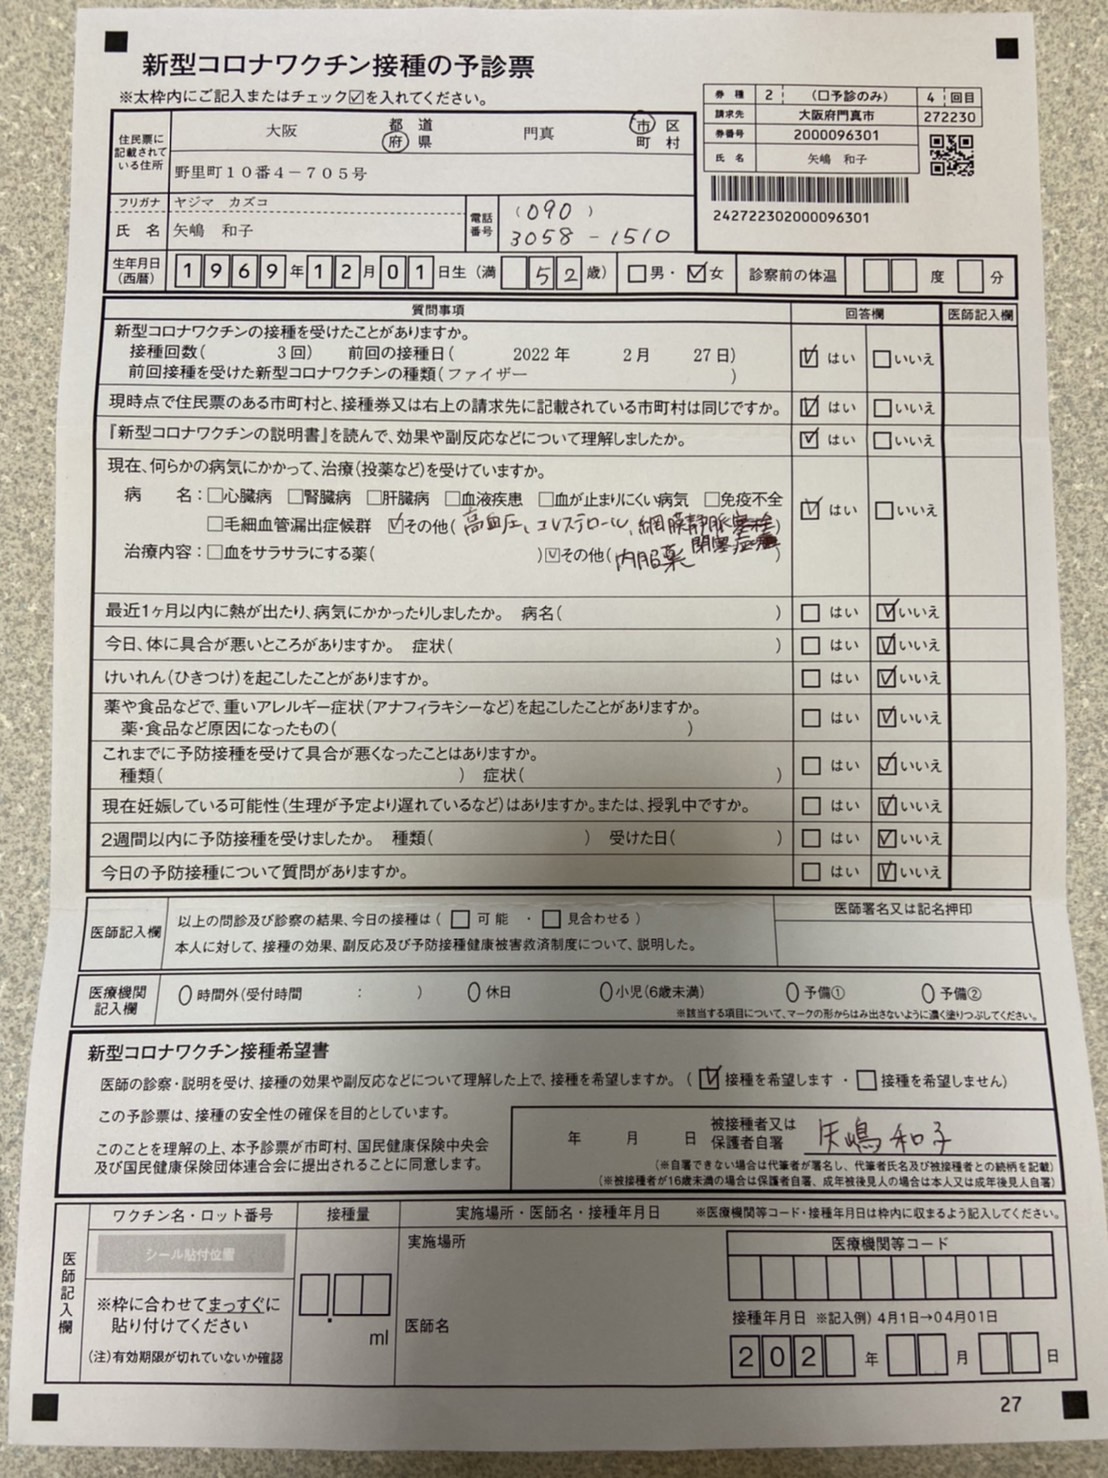 新型コロナワクチン接種の予診票
※太枠内にご記入またはチェック☑を入れてください。
券種 2 (口予診のみ) 4 回目
請求先 大阪府門真市 272230
券番号 2000096301
氏名 矢嶋 和子
242722302000096301
住民票に記載されている住所 大阪 都道府県 門真 市区町村
野里町10番4-705号
フリガナ ヤジマ カズコ
氏名 矢嶋 和子
電話番号 (090) 3058-1510
生年月日(西暦) 1969年12月01日生(満 52歳) □男・☑女 診察前の体温 度 分
質問事項 回答欄 医師記入欄
新型コロナワクチンの接種を受けたことがありますか。
接種回数( 3回) 前回の接種日( 2022年 2月 27日) ☑はい □いいえ
前回接種を受けた新型コロナワクチンの種類(ファイザー )
現時点で住民票のある市町村と、接種券又は右上の請求先に記載されている市町村は同じですか。 ☑はい □いいえ
『新型コロナワクチンの説明書』を読んで、効果や副反応などについて理解しましたか。 ☑はい □いいえ
現在、何らかの病気にかかって、治療(投薬など)を受けていますか。
病名:□心臓病 □腎臓病 □肝臓病 □血液疾患 □血が止まりにくい病気 □免疫不全 ☑はい □いいえ
□毛細血管漏出症候群 ☑その他(高血圧、コレステロール、網膜静脈閉塞症)
治療内容:□血をサラサラにする薬( )☑その他(内服薬 )
最近1ヶ月以内に熱が出たり、病気にかかったりしましたか。 病名( ) □はい ☑いいえ
今日、体に具合が悪いところがありますか。 症状( ) □はい ☑いいえ
けいれん(ひきつけ)を起こしたことがありますか。 □はい ☑いいえ
薬や食品などで、重いアレルギー症状(アナフィラキシーなど)を起こしたことがありますか。
薬・食品など原因になったもの( ) □はい ☑いいえ
これまでに予防接種を受けて具合が悪くなったことはありますか。
種類( ) 症状( ) □はい ☑いいえ
現在妊娠している可能性(生理が予定より遅れているなど)はありますか。または、授乳中ですか。 □はい ☑いいえ
2週間以内に予防接種を受けましたか。 種類( ) 受けた日( ) □はい ☑いいえ
今日の予防接種について質問がありますか。 □はい ☑いいえ
医師記入欄 以上の問診及び診察の結果、今日の接種は( □可能 ・ □見合わせる )
本人に対して、接種の効果、副反応及び予防接種健康被害救済制度について、説明した。
医師署名又は記名押印
医療機関記入欄 時間外(受付時間 : ) 休日 小児(6歳未満) 予備① 予備②
※該当する項目について、マークの形からはみ出さないように濃く塗りつぶしてください。
新型コロナワクチン接種希望書
医師の診察・説明を受け、接種の効果や副反応などについて理解した上で、接種を希望しますか。( ☑接種を希望します ・ □接種を希望しません)
この予診票は、接種の安全性の確保を目的としています。
このことを理解の上、本予診票が市町村、国民健康保険中央会
及び国民健康保険団体連合会に提出されることに同意します。
年 月 日 被接種者又は保護者自署 矢嶋和子
(※自署できない場合は代筆者が署名し、代筆者氏名及び被接種者との続柄を記載)
(※被接種者が16歳未満の場合は保護者自署、成年被後見人の場合は本人又は成年後見人自署)
医師記入欄
ワクチン名・ロット番号 接種量 実施場所・医師名・接種年月日 ※医療機関等コード・接種年月日は枠内に収まるよう記入してください。
シール貼付位置
実施場所
医療機関等コード
※枠に合わせてまっすぐに
貼り付けてください
ml
医師名
接種年月日 ※記入例) 4月1日→04月01日
(注)有効期限が切れていないか確認
202 年 月 日
27